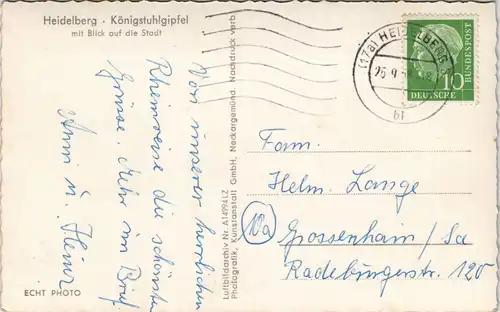 Heidelberg · Königstuhlgipfel
mit Blick auf die Stadt
Von unserer herrlichen
Rheinreise die schönsten
Grüsse. Mehr im Brief.
Anni u. Heinz
ECHT PHOTO
Luftbildarchiv Nr. A14994LZ
Photografik, Kunstanstalt GmbH, Neckargemünd. Nachdruck verb.
(17a) HEIDELBERG
bl
10
DEUTSCHE
BUNDESPOST
Fam.
Helm. Lange
10a
Grossenhain / Sa
Radeburgerstr. 120